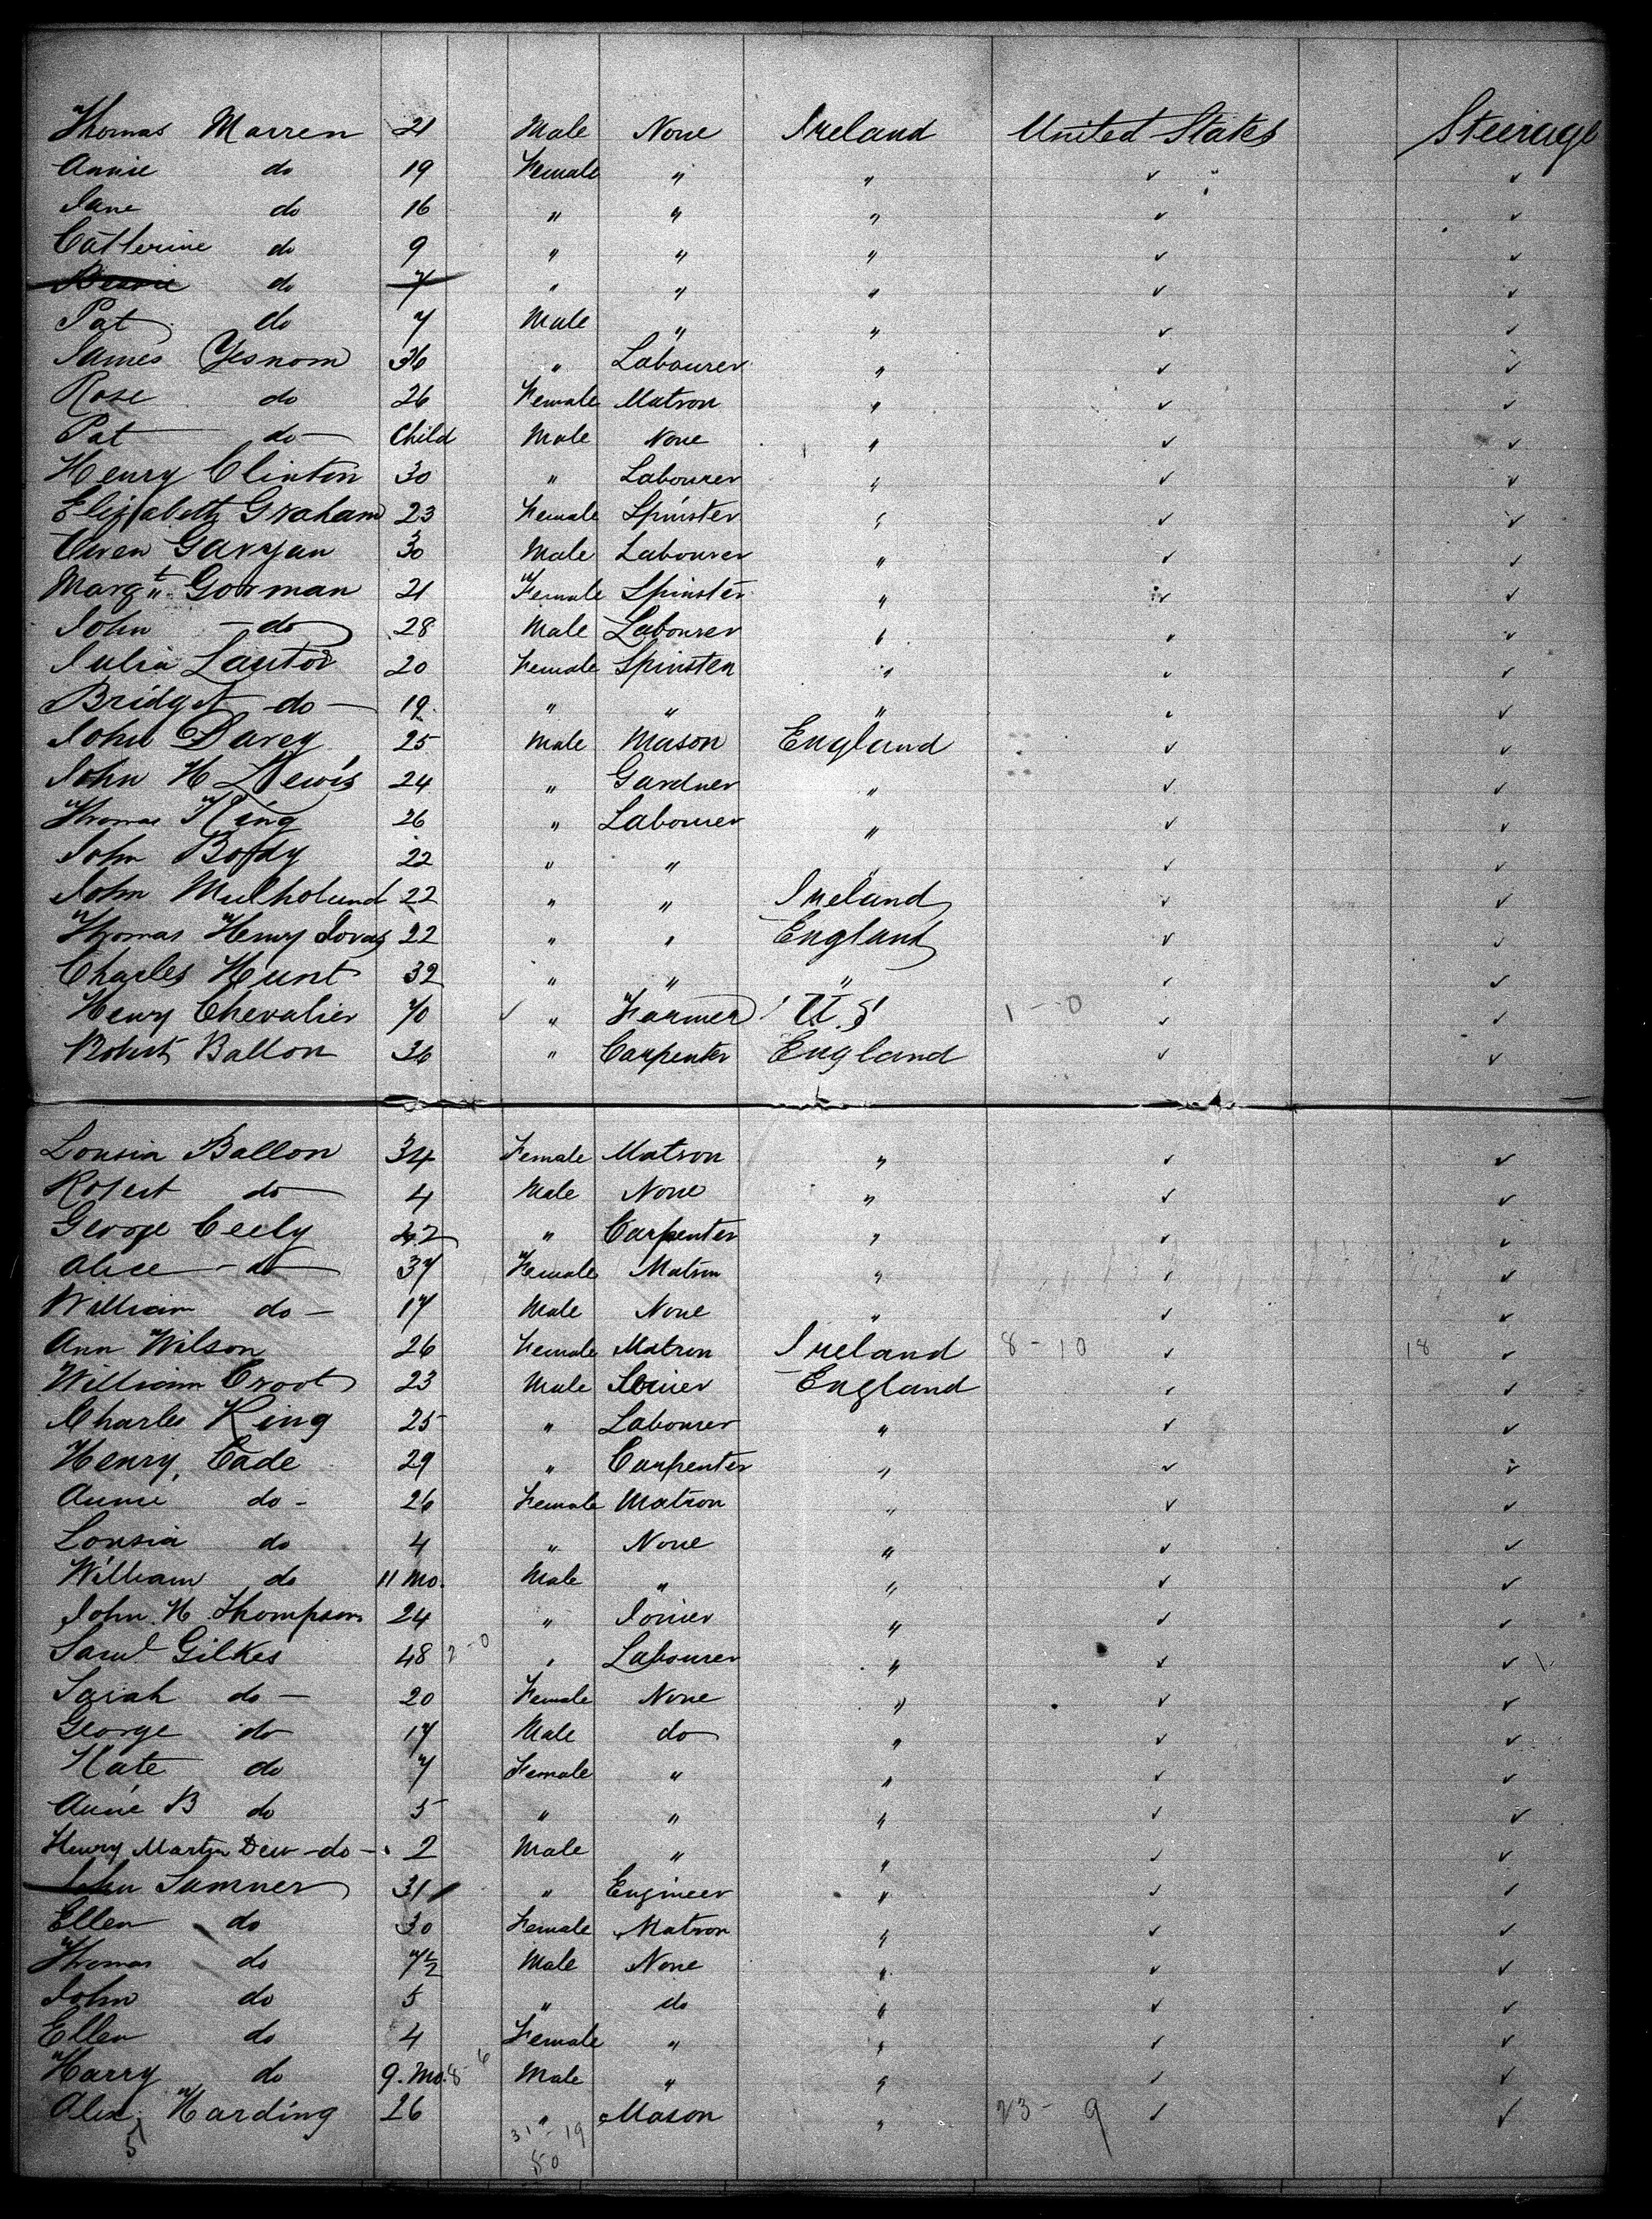 Thomas Marren 21 Male None Ireland United States Steerage
Annie do 19 Female " " ✓ ✓
Jane do 16 " " " ✓ ✓
Catterine do 9 " " " ✓ ✓
Bessie do 7 " " " ✓ ✓
Pat do 7 Male " " ✓ ✓
James Yesnom 36 " Labourer " ✓ ✓
Rose do 26 Female Matron " ✓ ✓
Pat do Child Male None " ✓ ✓
Henry Clinton 30 " Labourer " ✓ ✓
Elizabeth Graham 23 Female Spinster " ✓ ✓
Owen Gargan 30 Male Labourer " ✓ ✓
Margt Gorman 21 Female Spinster " ✓ ✓
John do 28 Male Labourer " ✓ ✓
Julia Lautor 20 Female Spinster " ✓ ✓
Bridget do 19 " " " ✓ ✓
John Davey 25 Male Mason England ✓ ✓
John H Lewis 24 " Gardner " ✓ ✓
Thomas King 26 " Labourer " ✓ ✓
John Boddy 22 " " " ✓ ✓
John Mulholand 22 " " Ireland ✓ ✓
Thomas Henry 22 " " England ✓ ✓
Charles Hunt 32 " " " ✓ ✓
Henry Chevalier 70 ✓ " Farmer U.S 1-0 ✓ ✓
Robert Ballon 36 " Carpenter England ✓ ✓
Lousia Ballon 34 Female Matron " ✓ ✓
Robert do 4 Male None " ✓ ✓
George Ceely 42 " Carpenter " ✓ ✓
Alice do 37 Female Matron " ✓ ✓
William do 17 Male None " ✓ ✓
Ann Wilson 26 Female Matron Ireland 8-10 ✓ 18 ✓
William Croot 23 Male Joiner England ✓ ✓
Charles King 25 " Labourer " ✓ ✓
Henry Cade 29 " Carpenter " ✓ ✓
Annie do 26 Female Matron " ✓ ✓
Lousia do 4 " None " ✓ ✓
William do 11 Mo. Male " " ✓ ✓
John H Thompson 24 " Joiner " ✓ ✓
Saml Gilkes 48 2-0 " Labourer " ✓ ✓
Sarah do 20 Female None " ✓ ✓
George do 17 Male do " ✓ ✓
Kate do 7 Female " " ✓ ✓
Annie B do 5 " " " ✓ ✓
Henry Martin Dew do 2 Male " " ✓ ✓
John Sumner 31 " Engineer " ✓ ✓
Ellen do 30 Female Matron " ✓ ✓
Thomas do 7½ Male None " ✓ ✓
John do 5 " do " ✓ ✓
Ellen do 4 Female " " ✓ ✓
Harry do 9. Mo. 8-6 Male " " ✓ ✓
Alex Harding 26 " Mason " 23-9 ✓ ✓
51 31-19
50